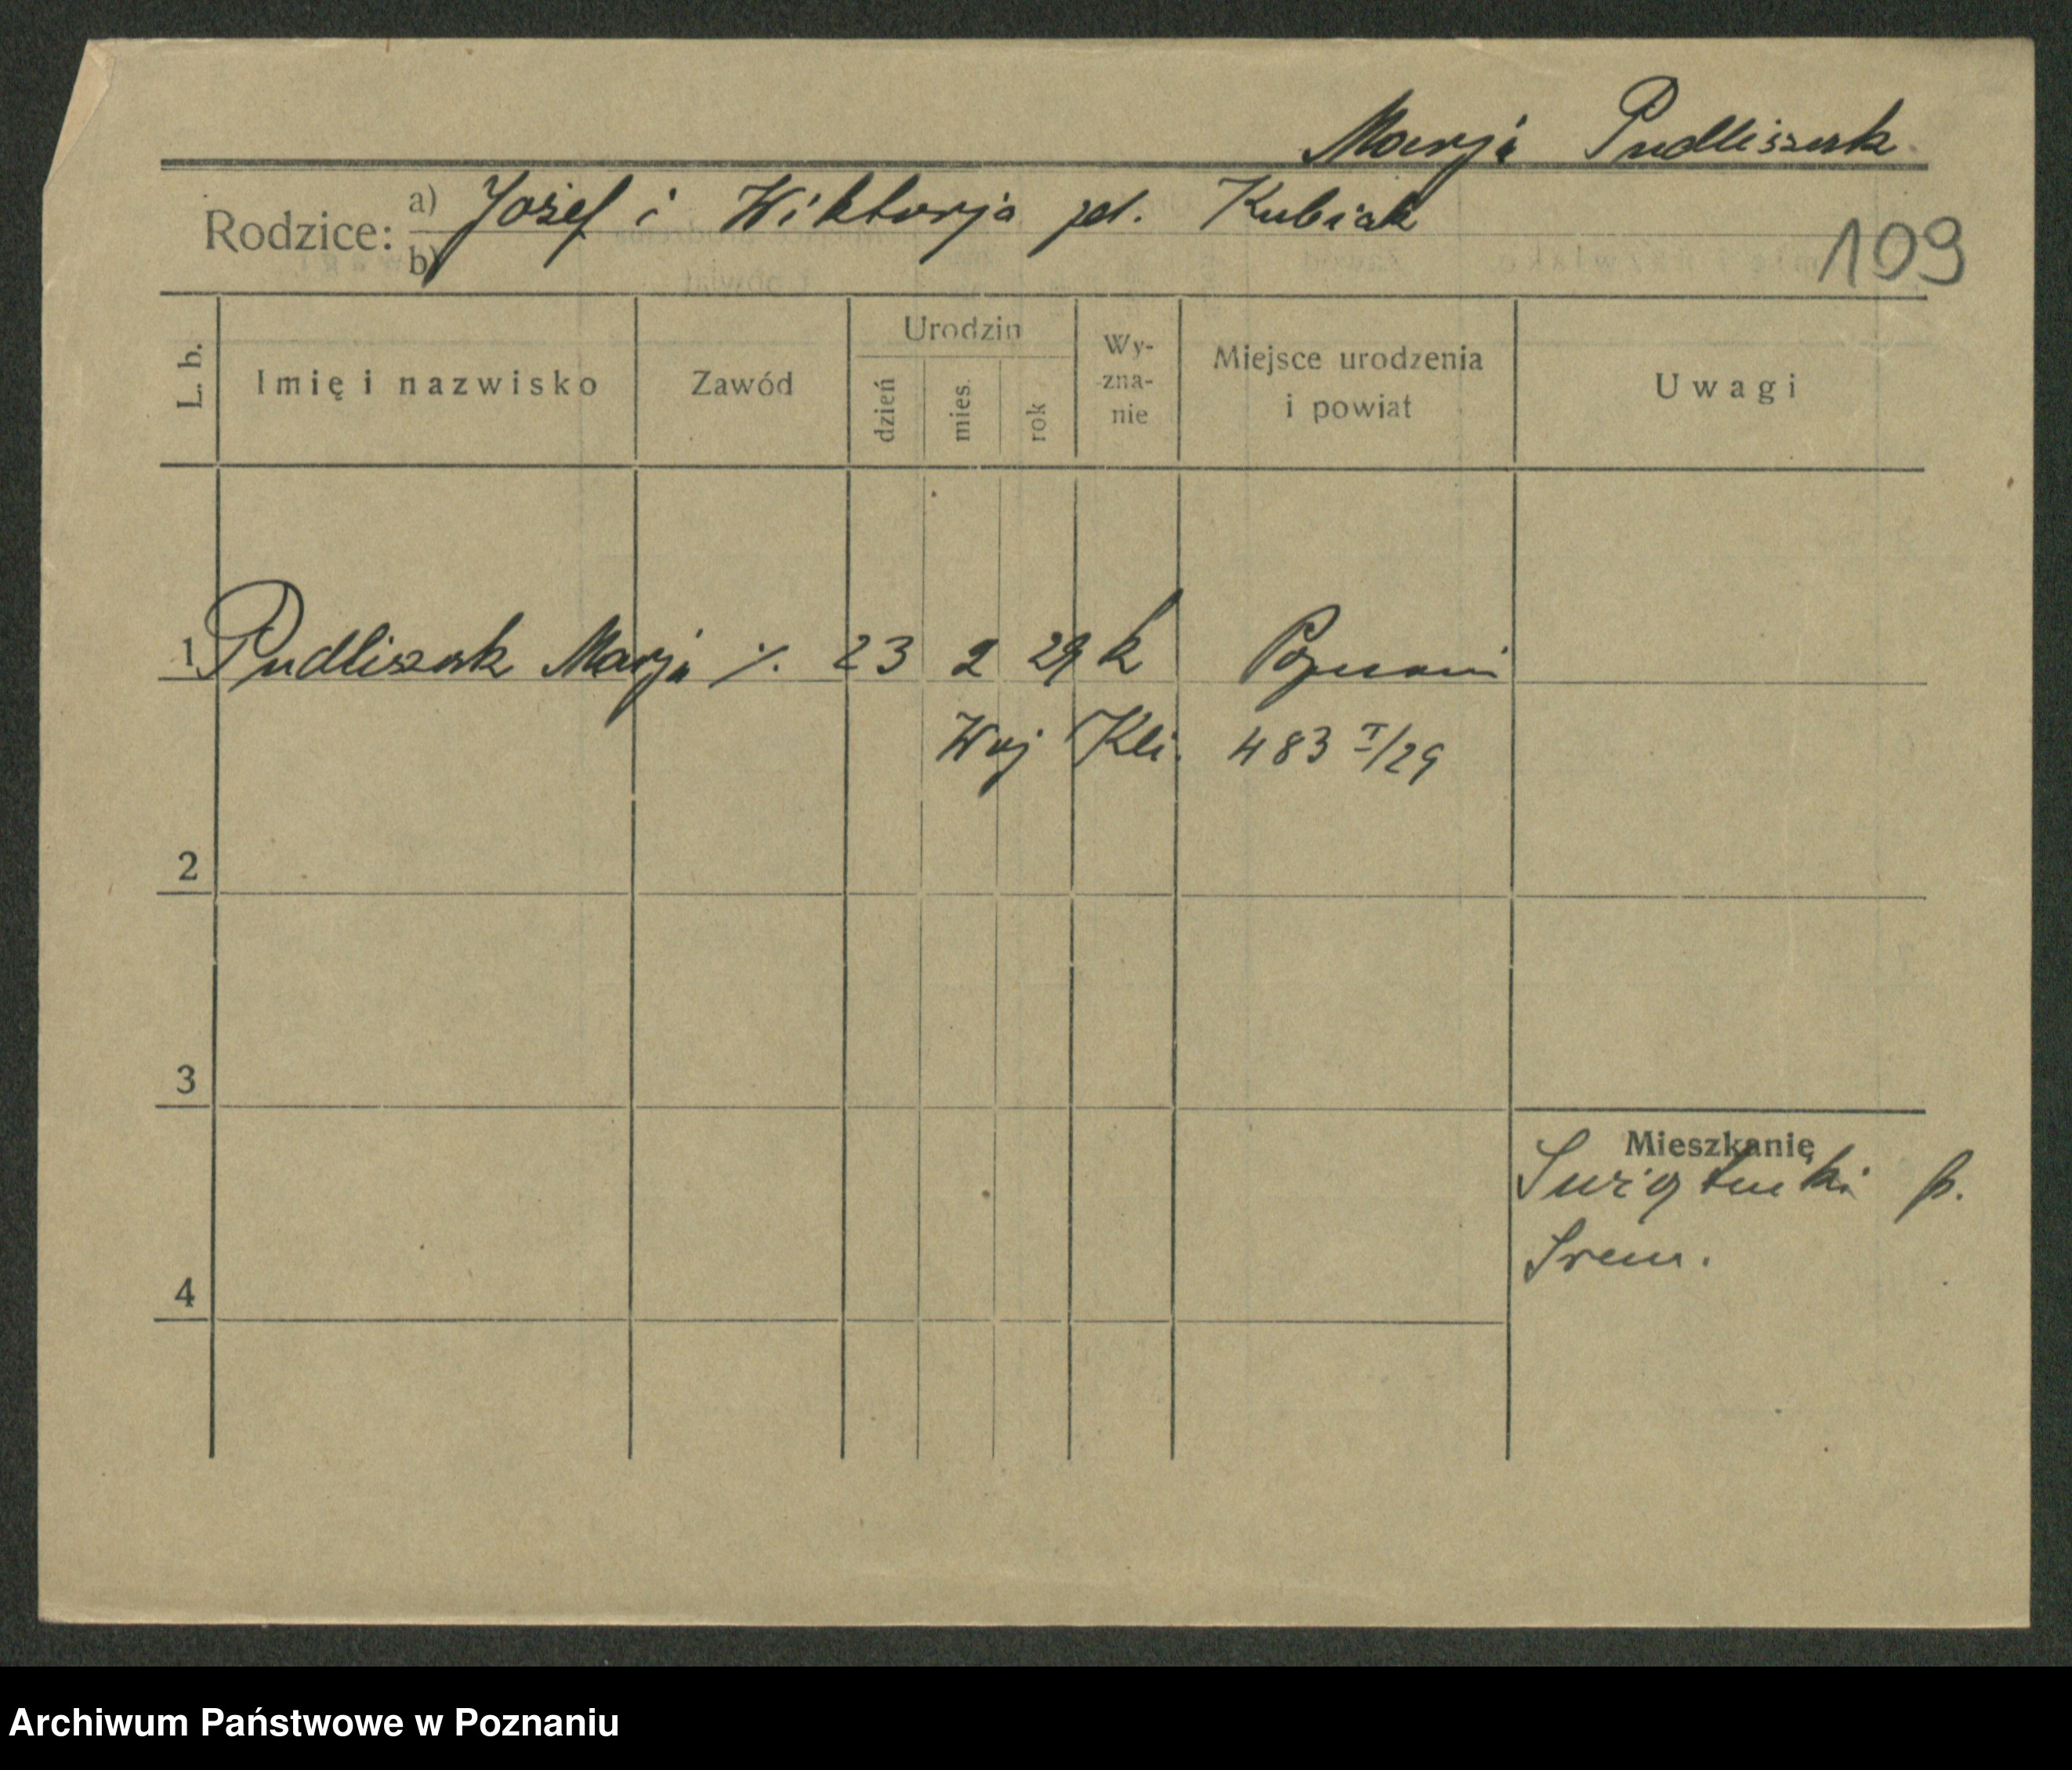 Marja Pudliszak
Rodzice: a) Józef i Wiktorja zd. Kubiak
b)
109
L. b.
Imię i nazwisko
Zawód
Urodzin
dzień
mies.
rok
Wy-
zna-
nie
Miejsce urodzenia
i powiat
Uwagi
1 Pudliszak Marja ./. 23 2 29 k Poznań
Woj Kli. 483 I/29
2
3
4
Mieszkanie
Swiątniki p.
Srem.
Archiwum Państwowe w Poznaniu